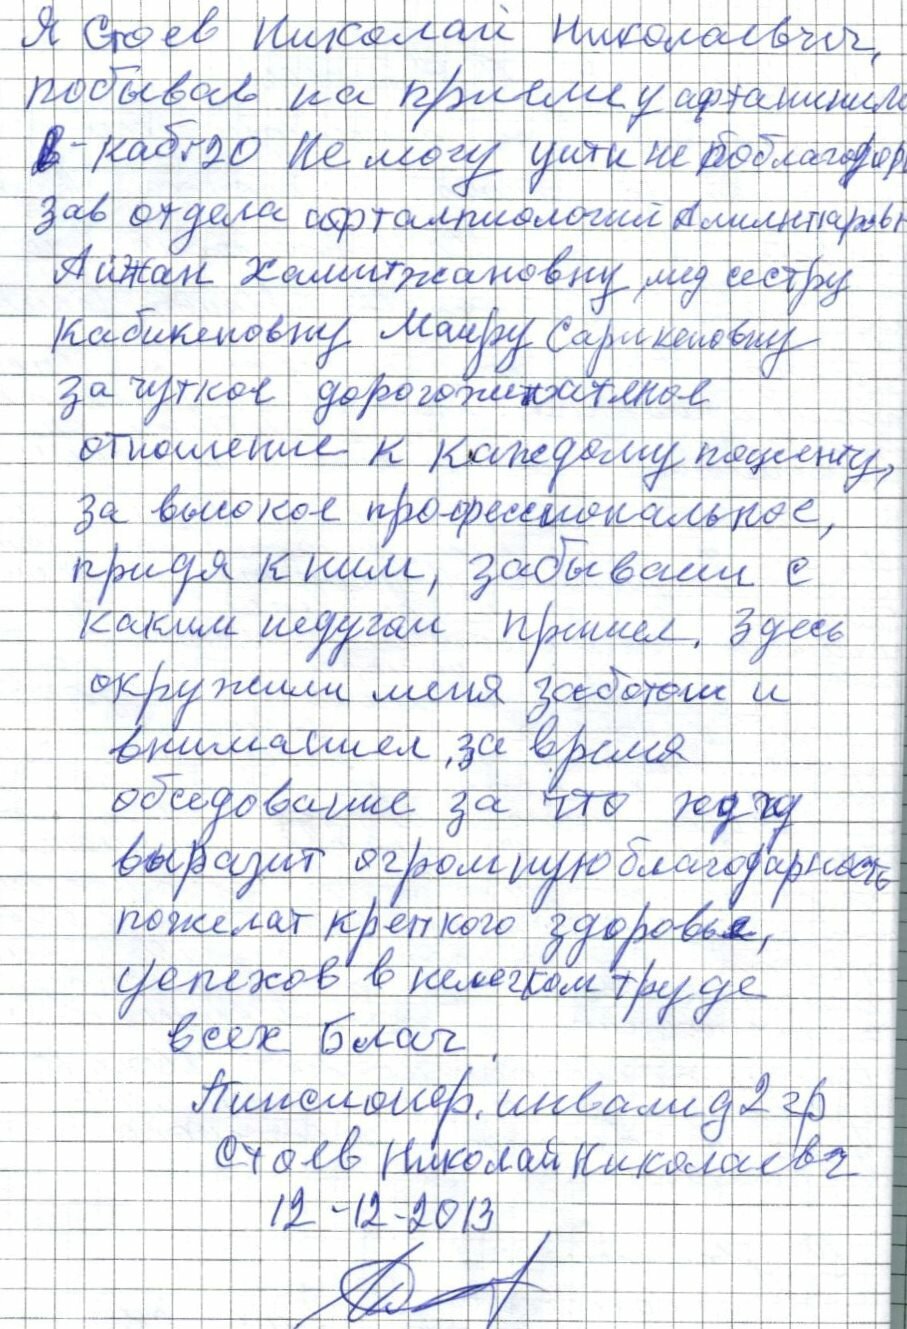 Я Стоев Николай Николаевич,
побывав на приеме у
в-каб-20 Не могу уйти не поблагодар
зав отдела
Айжан Хамитжановну, мед сестру
Кабикеновну Маиру Сарикеновну
за чуткое
отношение к каждому пациенту,
за высокое профессиональное,
придя к ним, забываеш с
каким недугом пришел. Здесь
окружили меня заботой и
вниманием, за время
обседование за что хочу
выразит огромную благодарность
пожелат крепкого здоровье,
успехов в нелегком труде
всех благ.
Пинсионер. инвалид 2 гр
Стоев Николай Николаевч
12-12-2013